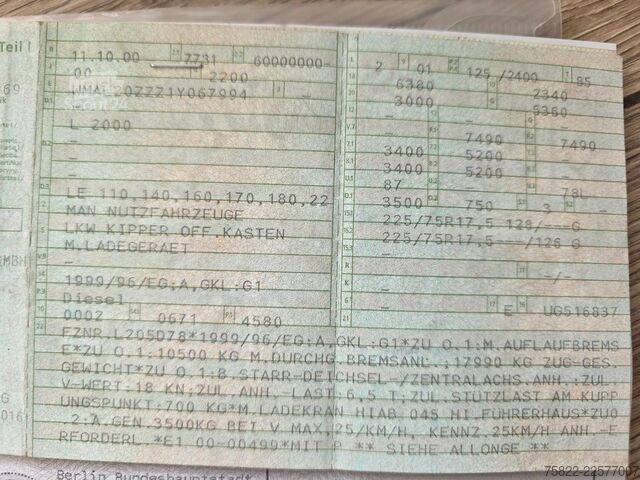 Teil I
11.10.00 7731 60000000-
00 2200
WMAL20ZZZ1Y067994 -
L 2000
-
-
-
LE 110,140,160,170,180,22
MAN NUTZFAHRZEUGE
LKW KIPPER OFF.KASTEN
M.LADEGERAET
-
1999/96/EG;A,GKL:G1
Diesel
0002 0671 4580
2 01 125/2400 85
6380 2340
3000 5360
- - -
- 7490 7490
3400 5200 -
3400 5200 -
87 - 78L
3500 750 3 -
225/75R17,5 128/---G
225/75R17,5---/126 G
-
- -/-
-
- E UG516837
FZNR.L205D78*1999/96/EG;A,GKL:G1*ZU O.1:M.AUFLAUFBREMS
E*ZU O.1:10500 KG M.DURCHG.BREMSANL.;17990 KG ZUG-GES.
GEWICHT*ZU O.1:B STARR-DEICHSEL-/ZENTRALACHS.ANH.:ZUL.
V-WERT:18 KN;ZUL.ANH.-LAST:6,5 T;ZUL STÜTZLAST AM KUPP
UNGSPUNKT:700 KG*M.LADEKRAN HIAB 045 HI.FÜHRERHAUS*ZUO
2:A.GEN.3500KG BEI V MAX.25/KM/H, KENNZ.25KM/H ANH.-E
RFORDERL.*E1 00-00499*MIT P ** SIEHE ALLONGE **
Berlin Bundeshauptstadt
75822-22577007